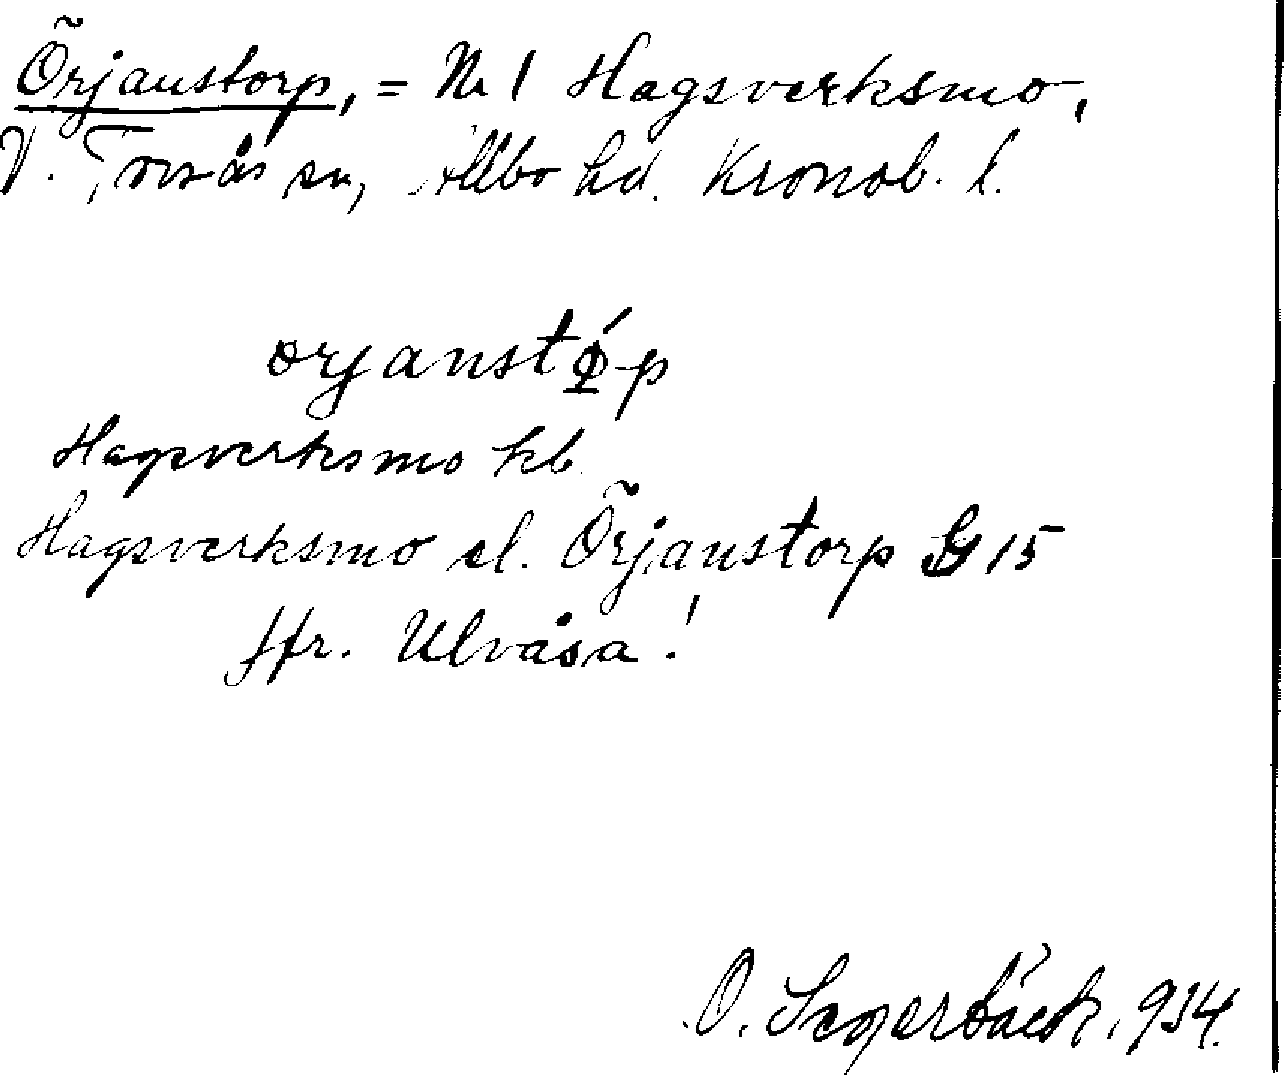 Örjanstorp, = Nr 1 Hagsverksmo,
V. Torsås sn, Allbo hd. Kronob. l.
Hagsverksmo kb.
Hagsverksmo el. Örjanstorp G 15
Jfr. Ulvåsa!
O. Segerbäck, 934.